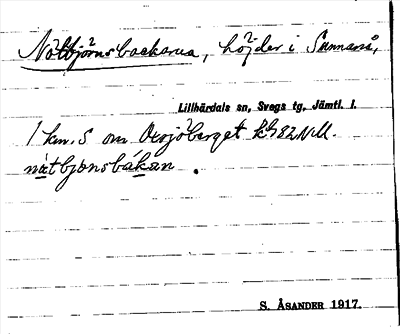 Nötbjörnsbackarna, höjder i Sunnanå,
Lillhärdals sn, Svegs tg, Jämtl. l.
1 km. S om Oxsjöberget k 82 N.M.
nøtbjønsbåkan.
S. ÅSANDER 1917.